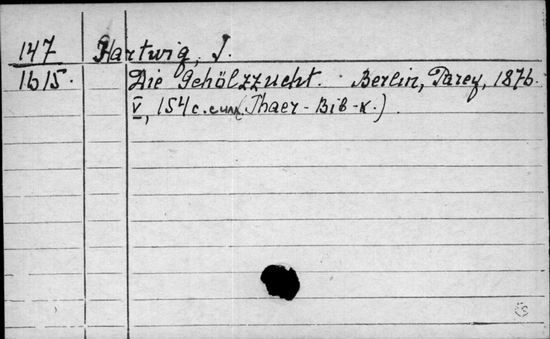 147 Hartwig, J.
1615. Die Gehölzzucht. Berlin, Parey, 1876.
V, 154 c. (Thaer-Bib-k.)